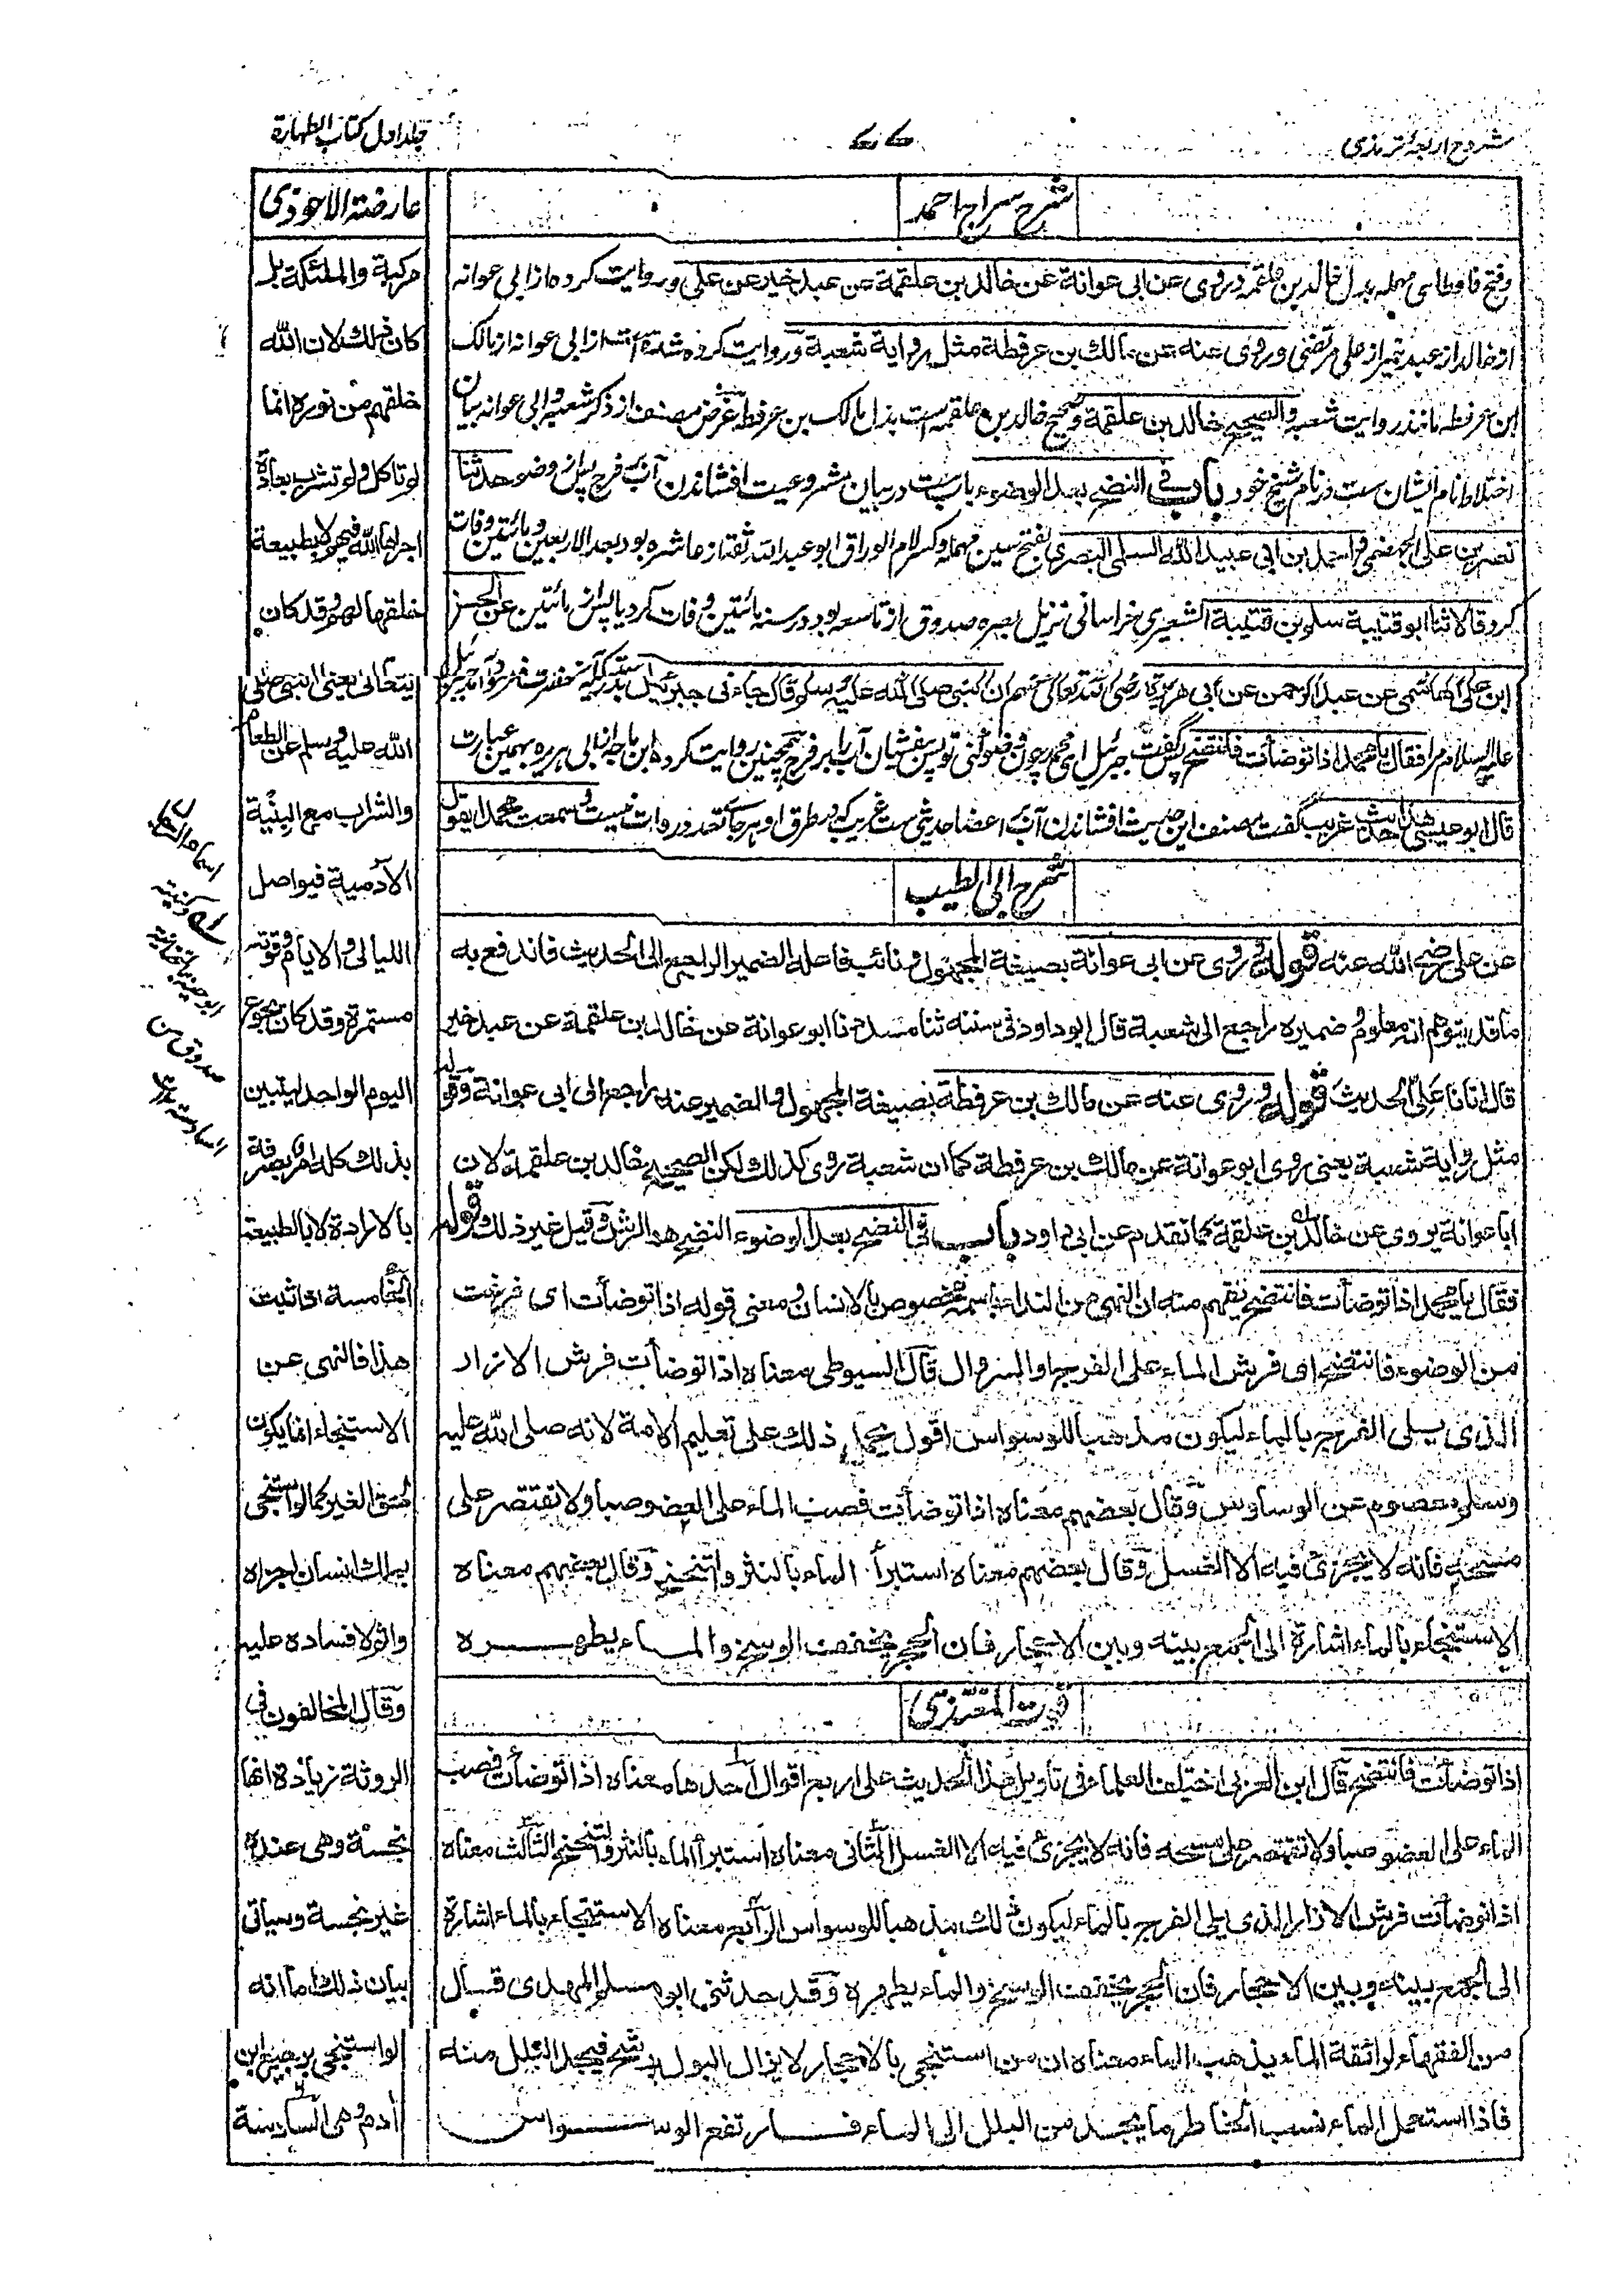 شروح اربعۂ ترمذی
۷۷
جلد اول کتاب الطهارة
شرح سراج احمد
وفتح فا وطائی مهمله بدل خالد بن علقمه وروى عن ابى عوانة عن خالد بن علقمة عن عبد خير عن على وروایت کرده از ابی عوانه
از خالد از عبد خیر از علی مرتضی وروى عنه عن مالك بن عرفطة مثل رواية شعبة وروایت کرده شده است از ابی عوانه از مالک
ابن عرفطه مانند روایت شعبه والصحيح خالد بن علقمة وصحیح خالد بن علقمه است بدل مالک بن عرفطه غرض مصنف از ذکر شعبه و ابی عوانه بیان
اختلاط نام ایشان ست در نام شیخ خود باب فى النضح بعد الوضوء باب ست در بیان مشروعیت افشاندن آب بر فرج پس از وضو حدثنا
نصر بن على الجهضمى واحمد بن ابى عبيد الله السلمى البصرى بفتح سین مهمله وکسر لام الوراق ابو عبد الله ثقه از عاشره بود بعد الاربعین و مائتین وفات
کرد قالا ثنا ابو قتيبة سلم بن قتيبة الشعيرى خراسانی نزیل بصره صدوق از تاسعه بود در سنه مائتین وفات کرد یا پس از مائتین عن الحسن
ابن على الهاشمى عن عبد الرحمن عن ابى هريرة رضی الله تعالی عنهم ان النبى صلى الله عليه وسلم قال جاءنى جبرئيل بدرستیکه آنحضرت فرمود آمد جبرئیل
علیه السلام مرا فقال يا محمد اذا توضأت فانتضح پس گفت جبرئیل ای محمد چون وضو کنی تو پس بفشان آب را بر فرج همچنین روایت کرده ابن ماجه از ابی هریره بهمین عبارت
قال ابو عيسى هذا حديث غريب گفت مصنف این حدیث افشاندن آب بر اعضا حدیثی ست غریب که در طرق او هر جا تعدد روات نیست وسمعت محمدا يقول
شرح ابی الطیب
عن على رضى الله عنه قوله وروى عن ابى عوانة بصيغة المجهول ونائب فاعله الضمير الراجع الى الحديث فاندفع به
ما قد يتوهم انه معلوم وضميره راجع الى شعبة قال ابو داود فى سننه ثنا مسدد نا ابو عوانة عن خالد بن علقمة عن عبد خير
قال اتانا على الحديث قوله وروى عنه عن مالك بن عرفطة بصيغة المجهول والضمير عنه راجع الى ابى عوانة وقوله
مثل رواية شعبة يعنى روى ابو عوانة عن مالك بن عرفطة كما ان شعبة روى كذلك لكن الصحيح خالد بن علقمة لان
ابا عوانة يروى عن خالد بن علقمة كما تقدم عن ابى داود باب فى النضح بعد الوضوء النضح هو الرش وقيل غير ذلك قوله
فقال يا محمد اذا توضأت فانتضح يفهم منه ان النهى من النداء باسمه مخصوص بالانسان ومعنى قوله اذا توضأت اى فرغت
من الوضوء فانتضح اى فرش الماء على الفرج او السروال قال السيوطى معناه اذا توضأت فرش الازار
الذى يلى الفرج بالماء ليكون مذهبا للوسواس اقول يحمل ذلك على تعليم الامة لانه صلى الله عليه
وسلم معصوم عن الوساوس وقال بعضهم معناه اذا توضأت فصب الماء على العضو صبا ولا تقتصر على
مسحه فانه لا يجزئ فيه الا الغسل وقال بعضهم معناه استبرأ الماء بالنثر والتنحنح وقال بعضهم معناه
الاستنجاء بالماء اشارة الى الجمع بينه وبين الاحجار فان الحجر يخفف الوسخ والماء يطهره
قوت المغتذی
اذا توضأت فانتضح قال ابن العربى اختلف العلماء فى تاويل هذا الحديث على اربع اقوال احدها معناه اذا توضأت فصب
الماء على العضو صبا ولا تقتصر على مسحه فانه لا يجزئ فيه الا الغسل الثانى معناه استبرأ الماء بالنثر والتنحنح الثالث معناه
اذا توضأت فرش الازار الذى يلى الفرج بالماء ليكون ذلك مذهبا للوسواس الرابع معناه الاستنجاء بالماء اشارة
الى الجمع بينه وبين الاحجار فان الحجر يخفف الوسخ والماء يطهره وقد حدثنى ابو مسلم المهدى قال
من الفقهاء الماء يذهب الماء معناه ان من استنجى بالاحجار لا يزال البول يرشح فيجد البلل منه
فاذا استعمل الماء نسب الخاطر ما يجد من البلل الى الماء فارتفع الوسواس
عارضة الاحوذی
مركبة والملئكة بل
كان ذلك لان الله
خلقهم من نوره انما
لو تاكل ولو تشرب بعادة
اجراها الله فيهم لا بطبيعة
خلقها لهم وقد كان
يتعالى يعنى النبى صلى
الله عليه وسلم عن الطعام
والشراب مع البنية
الآدمية فيواصل
الليالى والايام وقوته
مستمرة وقد كان يجوع
اليوم الواحد ليتبين
بذلك كله امره بصرفه
بالارادة لا بالطبيعة
الخامسة اذا ثبت
هذا فالنهى عن
الاستنجاء انما يكون
لحق الغير كما لو استنجى
بمال انسان اجزاه
واثم لافساده عليه
وقال المخالفون فى
الروثة زيادة انها
نجسة وهى عنده
غير نجسة وسياتى
بيان ذلك ما انه
لو استنجى برجيع ابن
آدم وهى السادسة